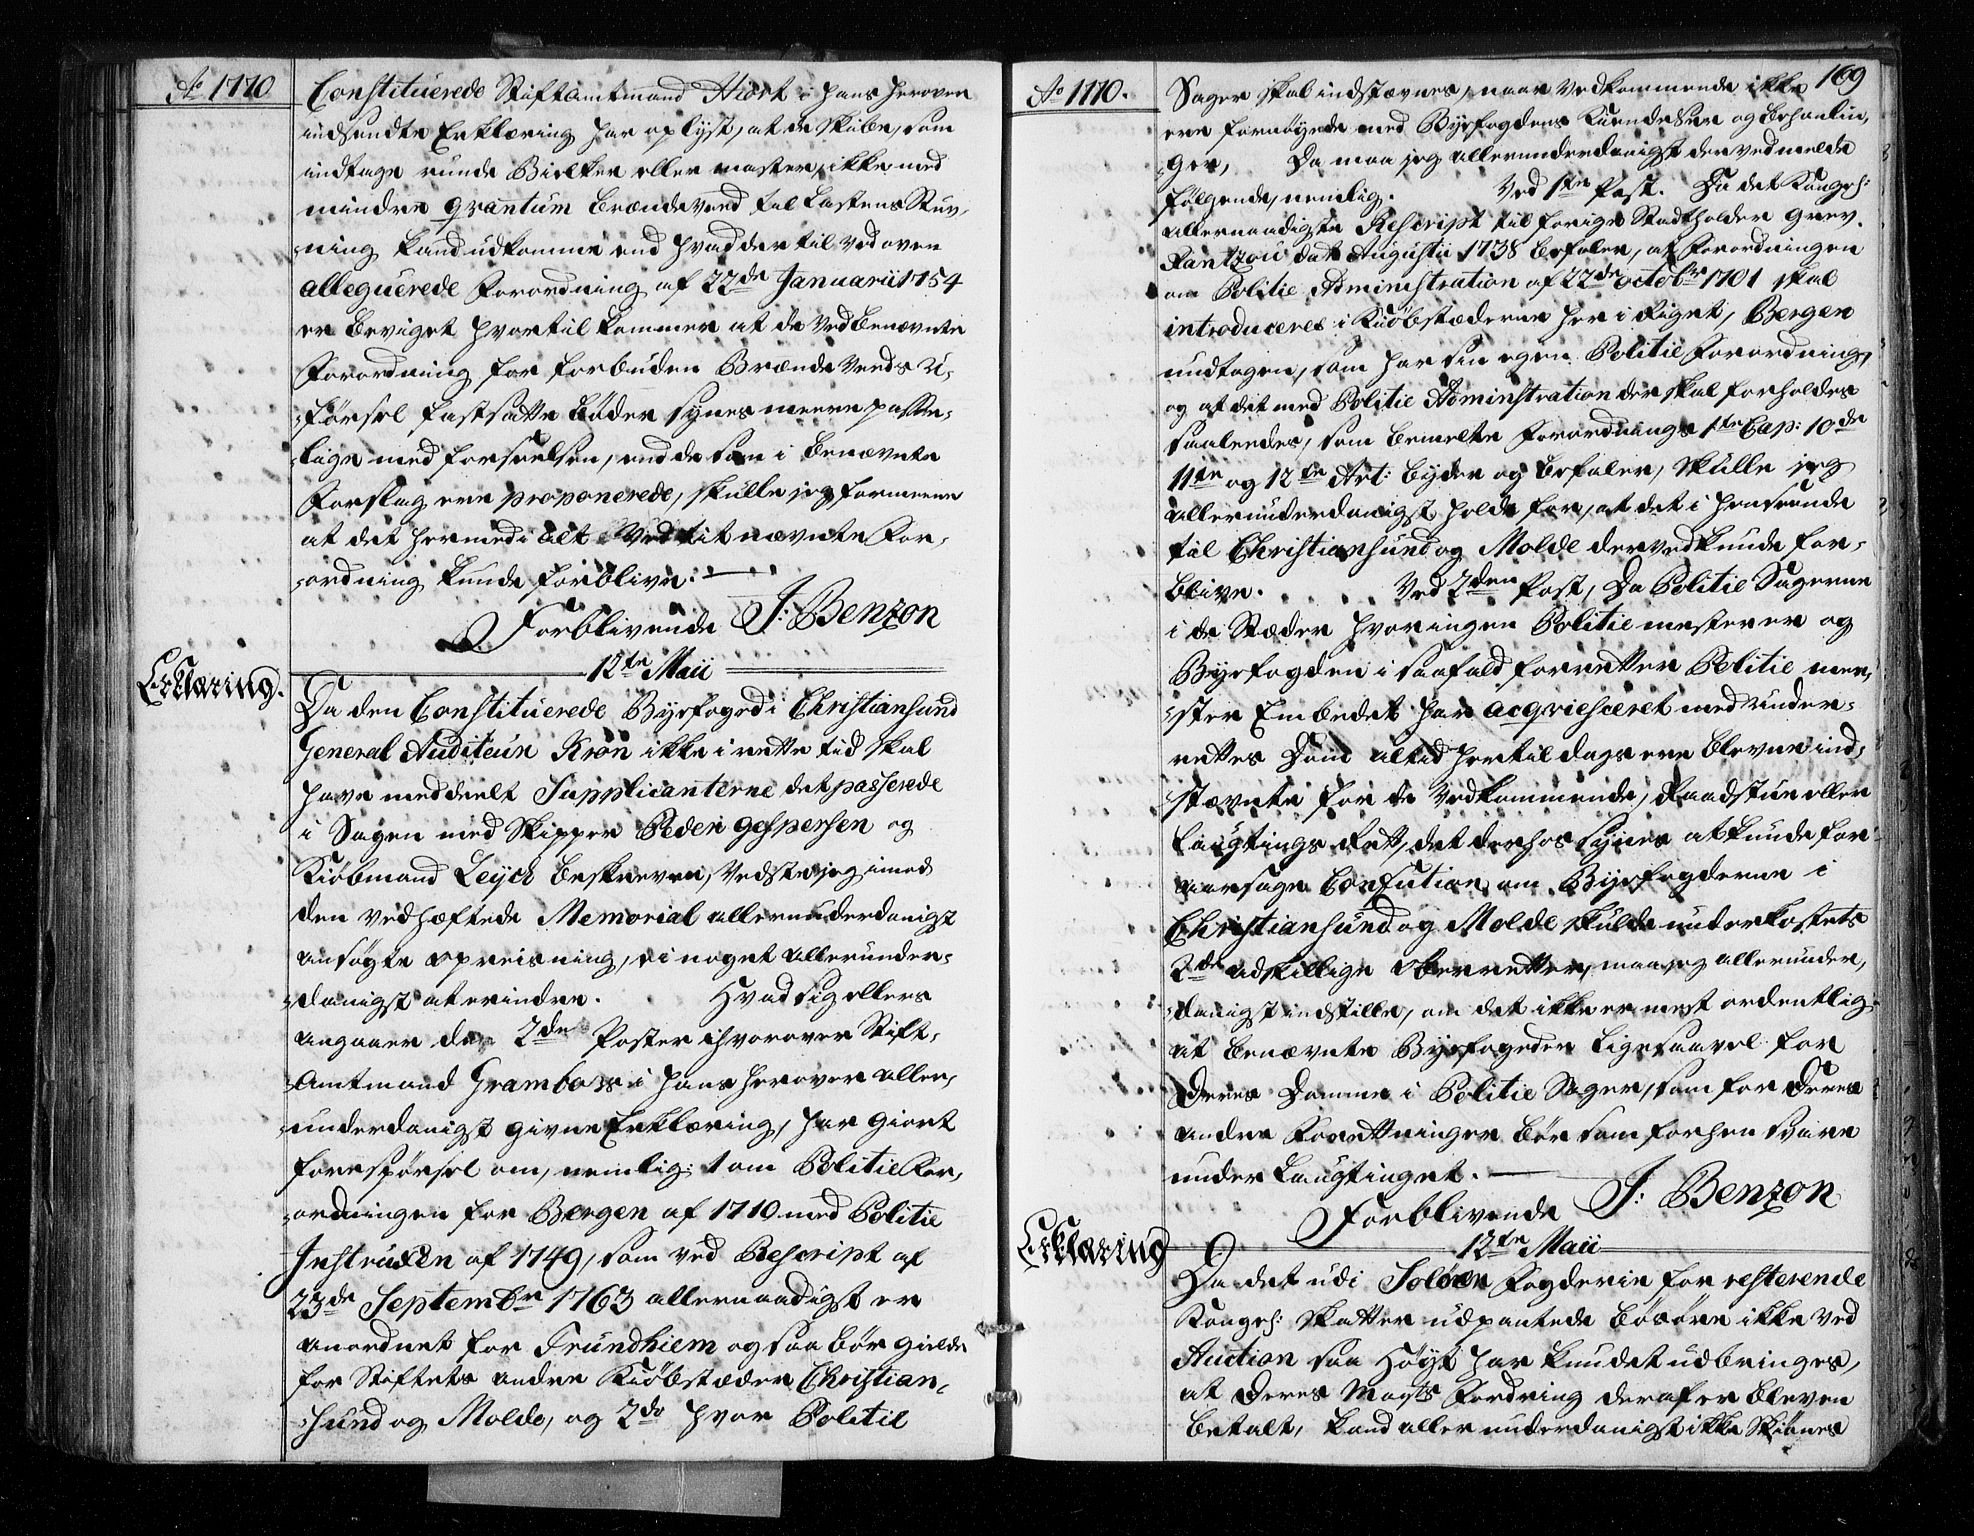 Ao 1770
Constituerede Stiftamtmand Hiort i hans herover
indsendte Erklæring har oplyst, at de Skibe, som
indtage runde Bielker eller master, ikke med
mindre qvantum brændeveed til Lastens Stuv-
ning kand udkomme end hvad der til ved oven
alleguerede Forordning af 22de Januarii 1754
er beviget hvortil kommer at de ved benævnte
Forordning for forbuden Brændeveeds U-
førsel fastsatte bøder synes meere passe-
lige med forseelsen, end de som i benævnte
Forslag ere proponerede, skulle jeg formeene
at det hermed i alt ved tit nævnte For-
ordning kunde forblive.
Forblivende J: Benzon
12te Maii
Erklæring.
Da den Constituerede Byefoged i Christiansund
General Auditeur Krøn ikke i rette tid skal
have meddeelt Supplicanterne det passerede
i Sagen med Skipper Peder Gespersen og
Kiøbmand Leych beskreven, vedste jeg imod
den vedhæftede Memorial allerunderdanigst
ansøgte opreisning, ei noget allerunder-
danigst at erindre. Hvad sig ellers
angaaer de 2de Poster i hvorover Stift-
Amtmand Grambow i hans herover aller-
underdanigst givne Erklæring, har giort
forespørsel om, nemlig: 1 om Politie For-
ordningen for Bergen af 1710 med Politie
Instruxen af 1749, som ved Rescript af
23de Septembr 1763 allernaadigst er
anordnet for Trundhiem og saa bør gielde
for Stiftets andre Kiøbstæder Christian-
sund og Molde, og 2do hvor Politie
Ao 1770.
169
Sager skal indstævnes, naar vedkommende ikke
ere fornøyede med Byefogdens Kiendelser og behanlin-
ger, Da maa jeg allerunderdanigst derved melde
følgende, nemlig. Ved 1ste Post. Da det Kongel:
allernaadigste Rescript til forige Stadtholder Grev
Rantzou dat: Augustii 1738 befaler, at Forordningen
om Politie Administration af 22de octobr 1701 skal
introduceres i Kiøbstæderne her i Riget, Bergen
undtagen, som har sin egen Politie Forordning,
og at det med Politie Administration der skal forholdes
saaledes, som bemelte Forordnings 1ste Cap: 10de
11te og 12te Art: byder og befaler, skulle jeg
allerunderdanigst holde for, at det i henseende
til Christiansund og Molde derved kunde for-
blive. Ved 2den Post, Da Politie Sagerne
i de Stæder hvor ingen Politiemester er og
Byefogden i saafald forretter Politie mee-
ster Embedet har acqviesceret med under-
rettes Dom altid hertildags ere blevne ind-
stævnte for de vedkommende, Raadstue eller
Laugtings Rett, det derhos synes at kunde for-
aarsage Confution, om Byefogderne i
Christiansund og Molde skulde underkastets
2de adskillige Oberretter, maa jeg allerunder-
danigst indstille, om det ikke er mest ordentlig
at benævnte Byefogeder ligesaavel for
Deres Domme i Politie Sager, som for Deres
andre Forrettninger bør som forhen svare
under Laugtinget.
Forblivende J: Benzon
12te Maii
Erklæring
Da det udi Soløer Fogderie for resterende
Kongel: Skatter udpantede bøsøre ikke ved
Auction saa Høyt har kundet udbringes,
at Deres Mayts Fordring deraf er bleven
betalt, kand allerunderdanigst ikke skiønnes